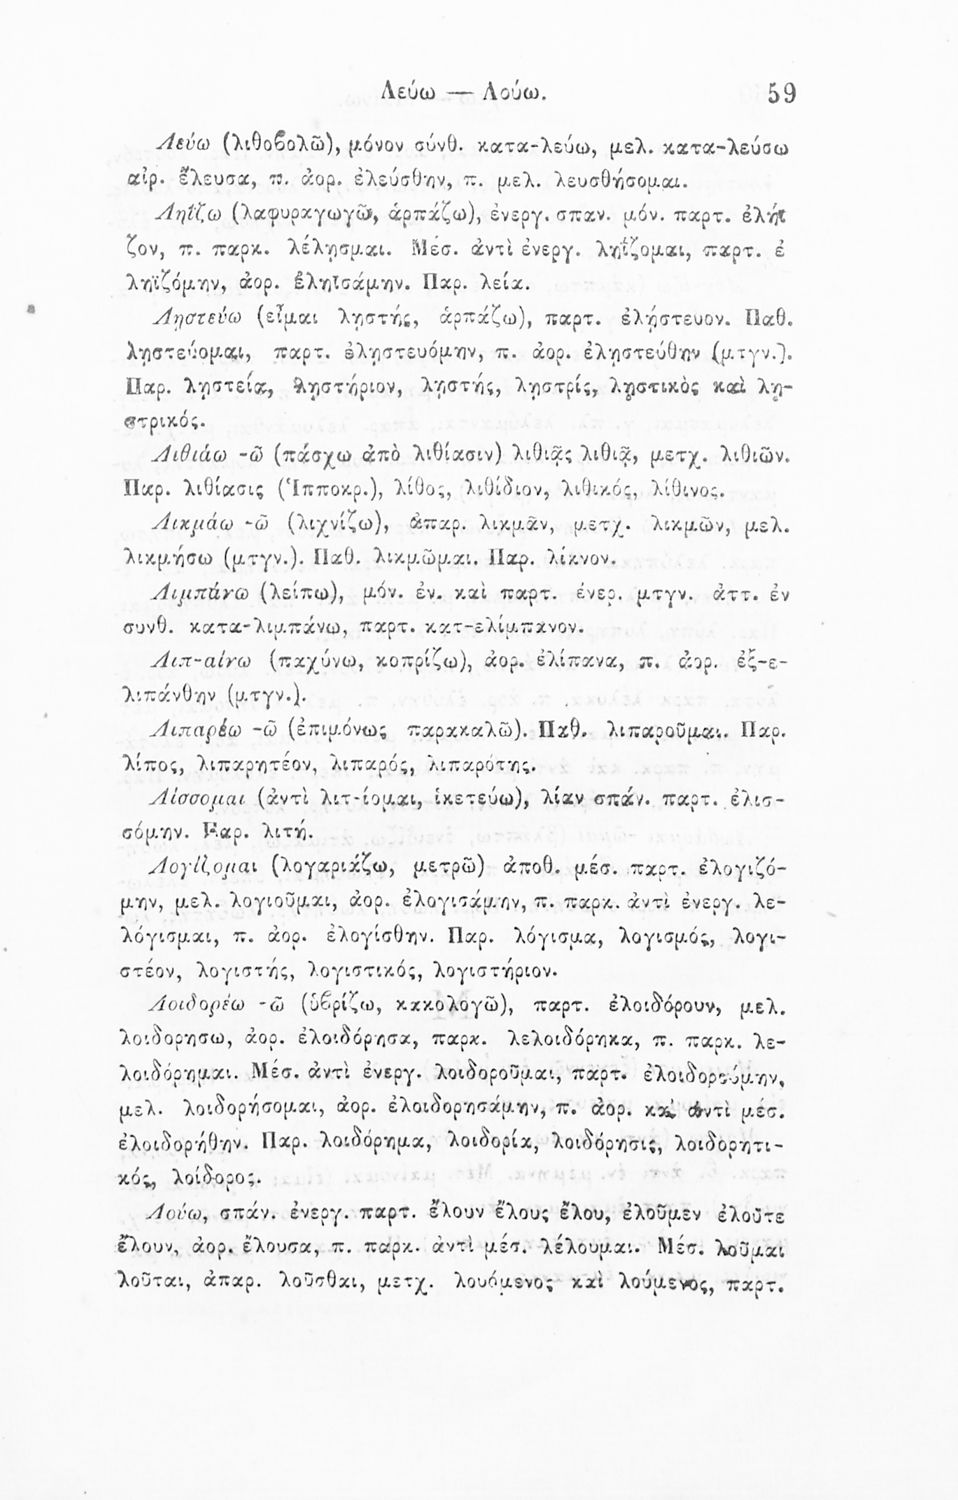 Λεύω — Λούω. 59
Λεύω (λιθοβολῶ), μόνον σύνθ. κατα-λεύω, μελ. κατα-λεύσω
αἰρ. ἔλευσα, π. ἀορ. ἐλεύσθην, π. μελ. λευσθήσομαι.
Ληΐζω (λαφυραγωγῶ, ἁρπάζω), ἐνεργ. σπαν. μόν. παρτ. ἐλήϊ
ζον, π. παρκ. λέλησμαι. Μέσ. ἀντὶ ἐνεργ. ληΐζομαι, παρτ. ἐ
ληϊζόμην, ἀορ. ἐληϊσάμην. Παρ. λεία.
Ληστεύω (εἶμαι ληστής, ἁρπάζω), παρτ. ἐλήστευον. Παθ.
ληστεύομαι, παρτ. ἐληστευόμην, π. ἀορ. ἐληστεύθην (μτγν.).
Παρ. ληστεία, ληστήριον, ληστής, λῃστρίς, λῃστικὸς καὶ λῃ-
στρικός.
Λιθιάω -ῶ (πάσχω ἀπὸ λιθίασιν) λιθιᾷς λιθιᾷ, μετχ. λιθιῶν.
Παρ. λιθίασις (Ἱπποκρ.), λίθος, λιθίδιον, λιθικός, λίθινος.
Λικμάω -ῶ (λιχνίζω), ἀπαρ. λικμᾶν, μετχ. λικμῶν, μελ.
λικμήσω (μτγν.). Παθ. λικμῶμαι. Παρ. λίκνον.
Λιμπάνω (λείπω), μόν. ἐν. καὶ παρτ. ἐνερ. μτγν. ἀττ. ἐν
συνθ. κατα-λιμπάνω, παρτ. κατ-ελίμπανον.
Λιπ-αίνω (παχύνω, κοπρίζω), ἀορ. ἐλίπανα, π. ἀορ. ἐξ-ε-
λιπάνθην (μτγν.).
Λιπαρέω -ῶ (ἐπιμόνως παρακαλῶ). Παθ. λιπαροῦμαι. Παρ.
λίπος, λιπαρητέον, λιπαρός, λιπαρότης.
Λίσσομαι (ἀντὶ λιτ-ίομαι, ἱκετεύω), λίαν σπάν. παρτ. ἐλισ-
σόμην. Παρ. λιτή.
Λογίζομαι (λογαριάζω, μετρῶ) ἀποθ. μέσ. παρτ. ἐλογιζό-
μην, μελ. λογιοῦμαι, ἀορ. ἐλογισάμην, π. παρκ. ἀντὶ ἐνεργ. λε-
λόγισμαι, π. ἀορ. ἐλογίσθην. Παρ. λόγισμα, λογισμός, λογι-
στέον, λογιστής, λογιστικός, λογιστήριον.
Λοιδορέω -ῶ (ὑβρίζω, κακολογῶ), παρτ. ἐλοιδόρουν, μελ.
λοιδορησω, ἀορ. ἐλοιδόρησα, παρκ. λελοιδόρηκα, π. παρκ. λε-
λοιδόρημαι. Μέσ. ἀντὶ ἐνεργ. λοιδοροῦμαι, παρτ. ἐλοιδορούμην,
μελ. λοιδορήσομαι, ἀορ. ἐλοιδορησάμην, π. ἀορ. καὶ ἀντὶ μέσ.
ἐλοιδορήθην. Παρ. λοιδόρημα, λοιδορία, λοιδόρησις, λοιδορητι-
κός, λοίδορος.
Λούω, σπάν. ἐνεργ. παρτ. ἔλουν ἔλους ἔλου, ἐλοῦμεν ἐλοῦτε
ἔλουν, ἀορ. ἔλουσα, π. παρκ. ἀντὶ μέσ. λέλουμαι. Μέσ. λοῦμαι
λοῦται, ἀπαρ. λοῦσθαι, μετχ. λουόμενος καὶ λούμενος, παρτ.